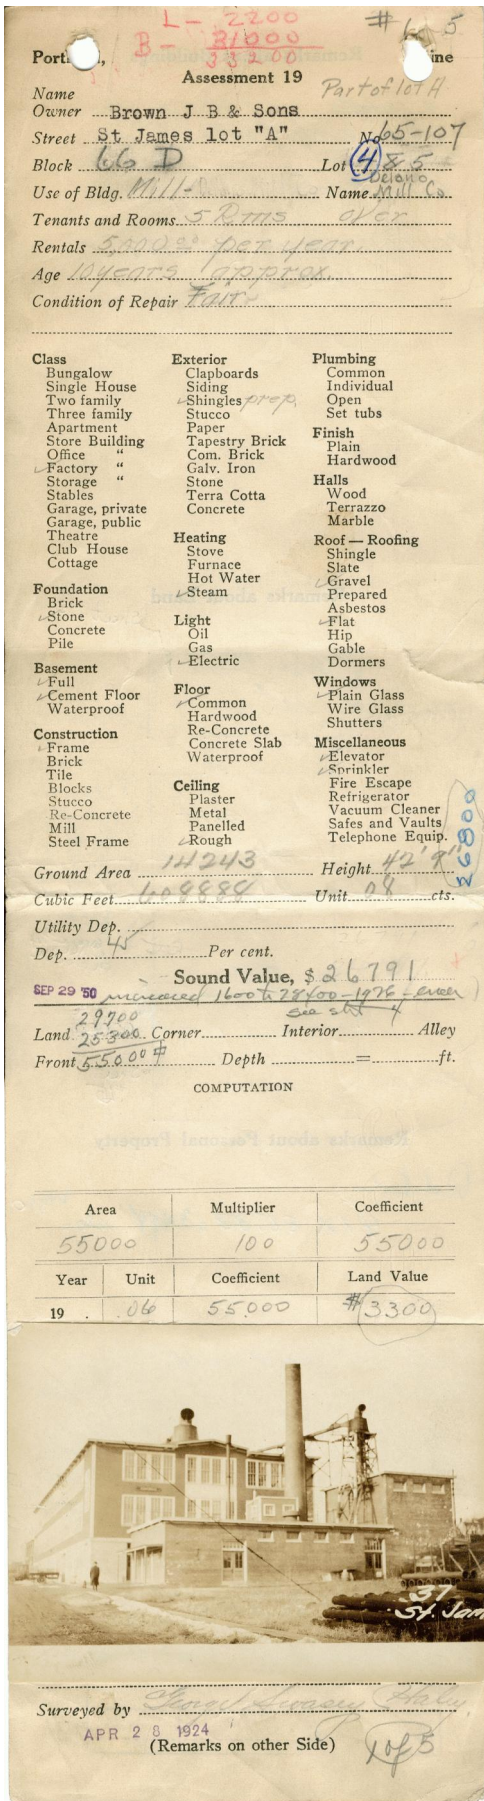 L - 2200
B - 31000
33200
# 6 5
Portl , ine
Assessment 19
Part of lot A
Name
Owner Brown J B & Sons
Street St James lot "A" No 65-107
Block 66 D Lot 4 8 5
Use of Bldg. Mill- Name Delano Mill Co
Tenants and Rooms 5 Rms over
Rentals 5,000.00 per year
Age 10 years approx.
Condition of Repair Fair
Class
Bungalow
Single House
Two family
Three family
Apartment
Store Building
Office "
✓Factory "
Storage "
Stables
Garage, private
Garage, public
Theatre
Club House
Cottage
Foundation
Brick
✓Stone
Concrete
Pile
Basement
✓Full
✓Cement Floor
Waterproof
Construction
✓Frame
Brick
Tile
Blocks
Stucco
Re-Concrete
Mill
Steel Frame
Exterior
Clapboards
Siding
✓Shingles prep.
Stucco
Paper
Tapestry Brick
Com. Brick
Galv. Iron
Stone
Terra Cotta
Concrete
Heating
Stove
Furnace
Hot Water
✓Steam
Light
Oil
Gas
✓Electric
Floor
✓Common
Hardwood
Re-Concrete
Concrete Slab
Waterproof
Ceiling
Plaster
Metal
Panelled
✓Rough
Plumbing
Common
Individual
Open
Set tubs
Finish
Plain
Hardwood
Halls
Wood
Terrazzo
Marble
Roof — Roofing
Shingle
Slate
✓Gravel
Prepared
Asbestos
✓Flat
Hip
Gable
Dormers
Windows
✓Plain Glass
Wire Glass
Shutters
Miscellaneous
✓Elevator
✓Sprinkler
Fire Escape
Refrigerator
Vacuum Cleaner
Safes and Vaults
Telephone Equip.
26800
Ground Area 14243 Height 42' 9"
Cubic Feet 608888 Unit 08 cts.
Utility Dep.
Dep. 45 Per cent.
Sound Value, $ 26791
SEP 29 '50 increased 1600 to 28400 - 1976 -
see
29700
Land 25300 Corner Interior Alley
Front 55000 # Depth = ft.
COMPUTATION
Area Multiplier Coefficient
55000 100 55000
Year Unit Coefficient Land Value
19 . .06 55.000 $ 3300
37
St. Jam
Surveyed by George Swasey
APR 28 1924
(Remarks on other Side)
1 of 5